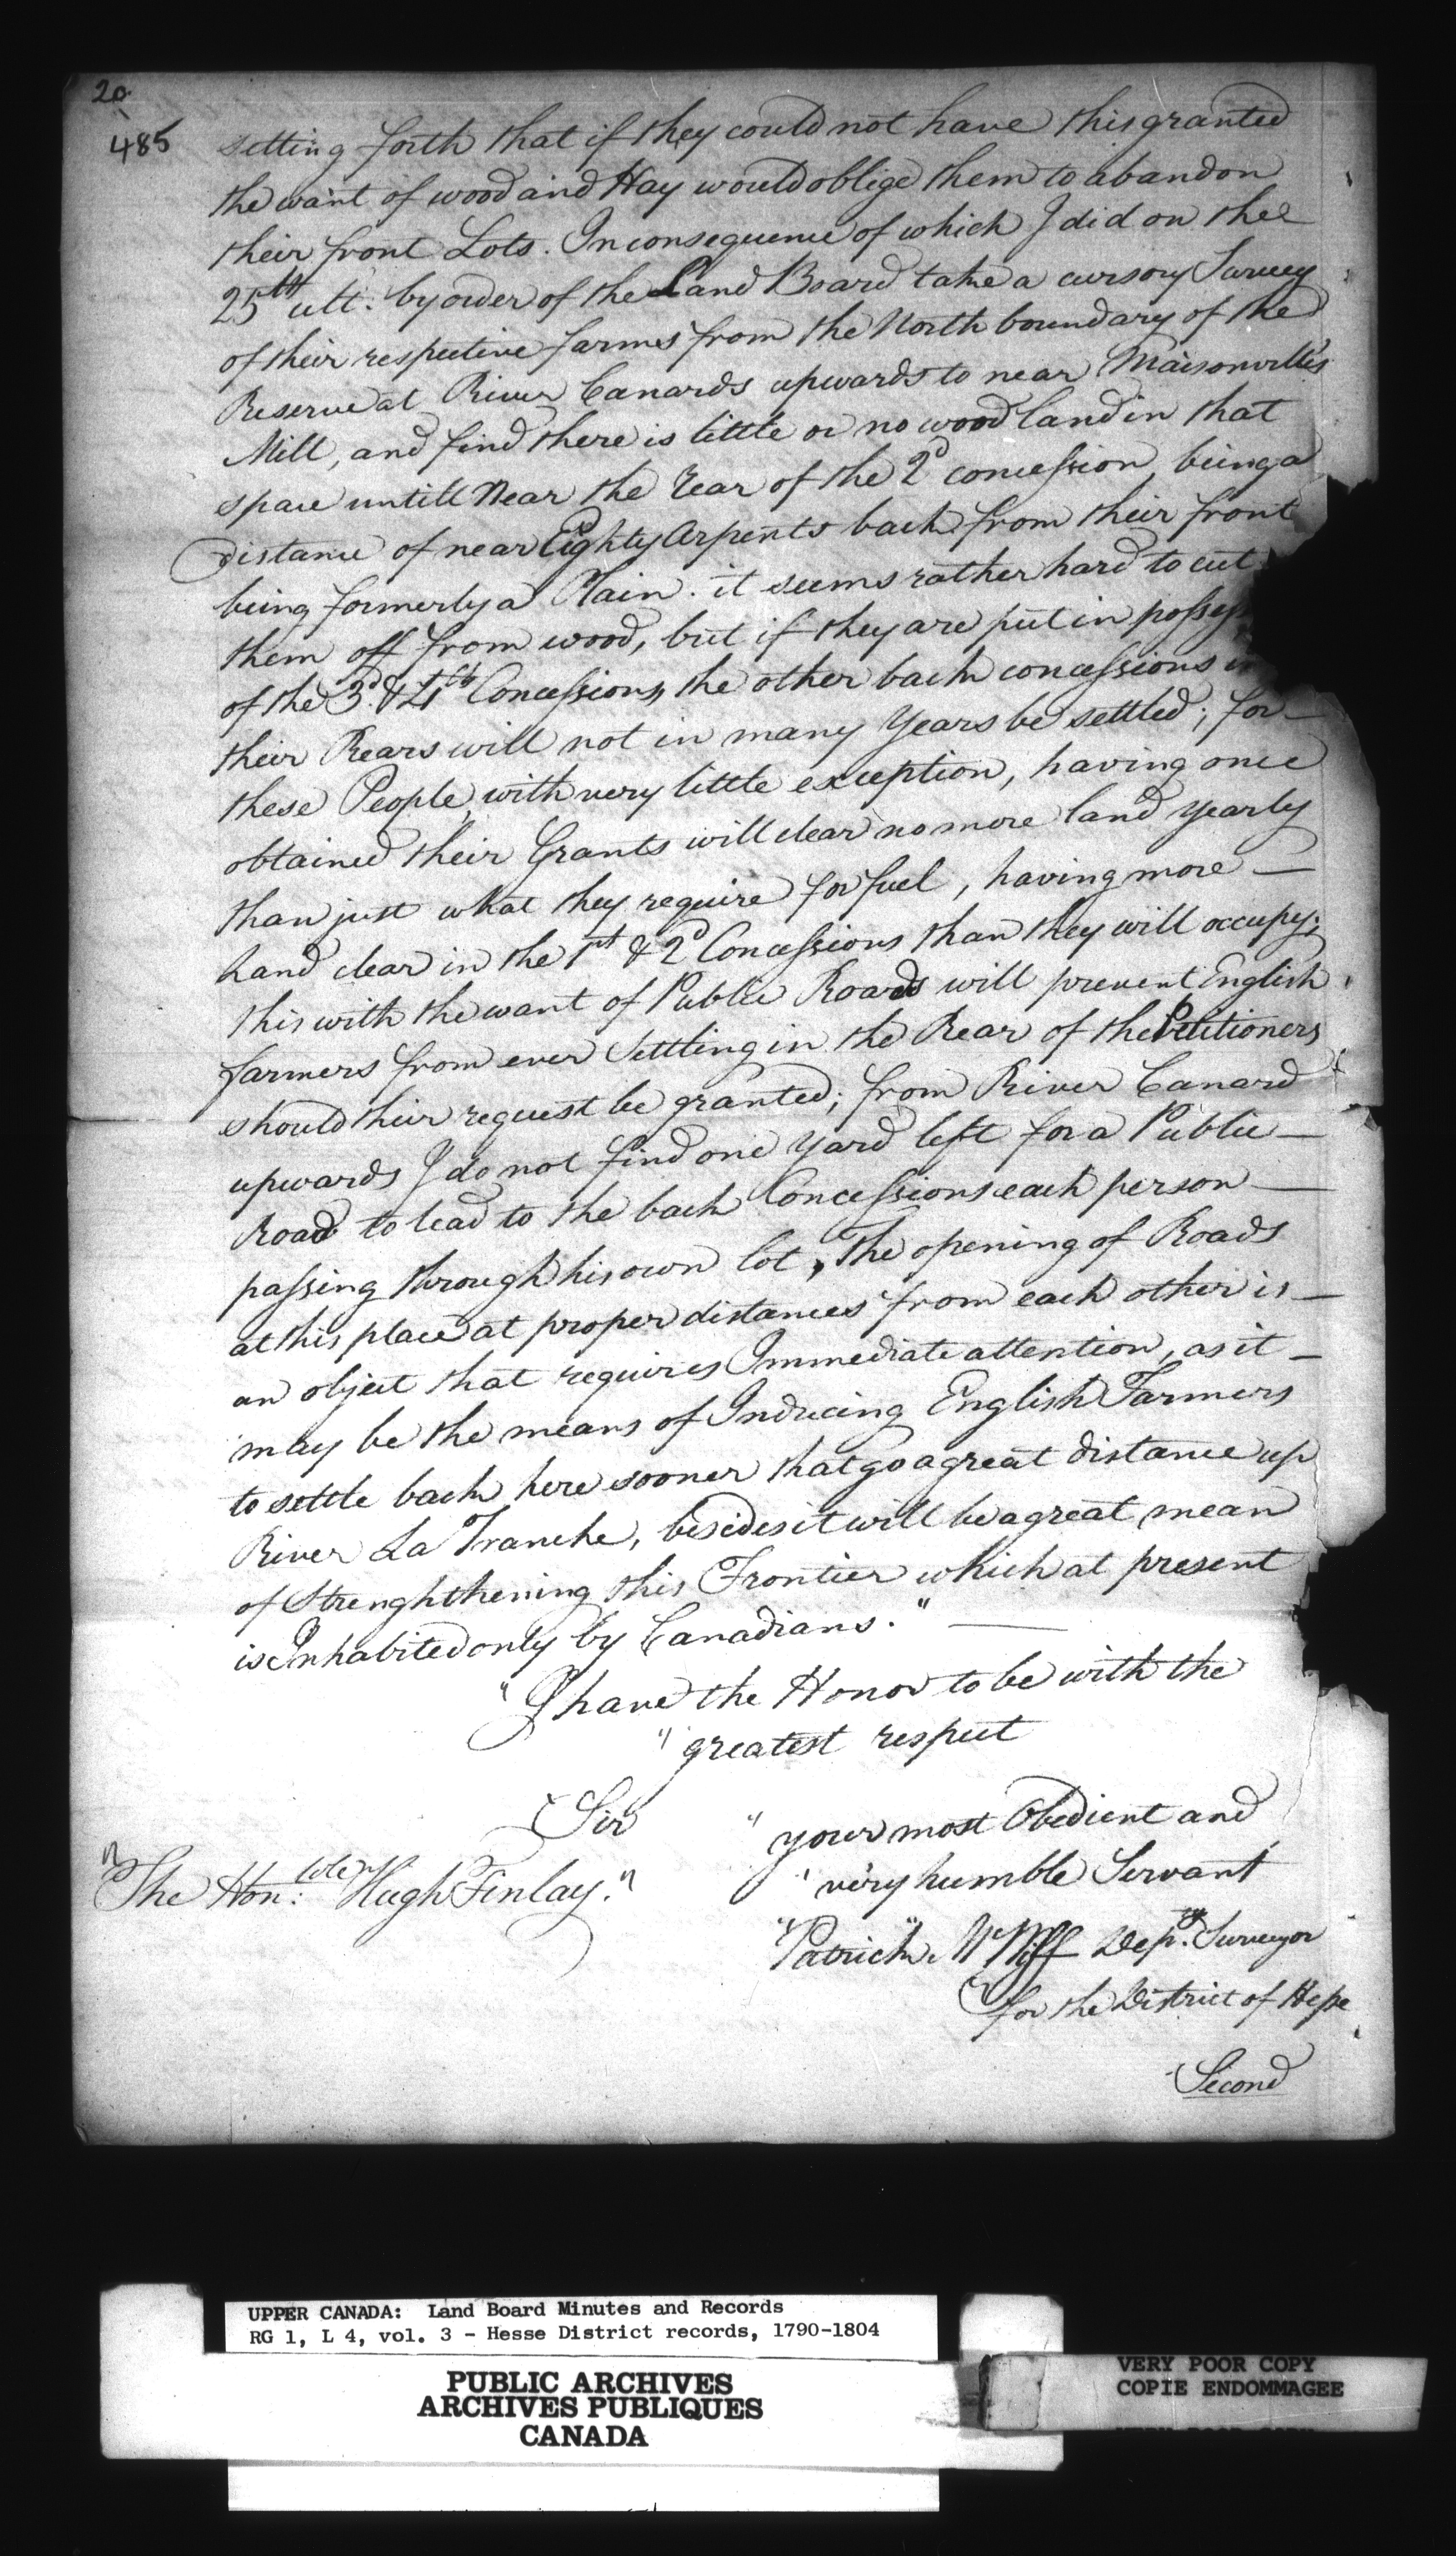 20
485
setting forth that if they could not have this granted
the want of wood and Hay would oblige them to abandon
their front Lots. In consequence of which I did on the
25th ult: by order of the Land Board take a cursory Survey
of their respective farms from the North boundary of the
Reserve at River Canards upwards to near Maisonville's
Mill, and find there is little or no wood land in that
space untill near the rear of the 2d concession, being a
distance of near Eighty Arpents back from their front
being formerly a Plain. it seems rather hard to cut
them off from wood, but if they are put in possess
of the 3d & 4th Concessions, the other back concessions in
their Rears will not in many Years be settled; for —
these People, with very little exception, having once
obtained their Grants will clear no more land yearly
than just what they require for fuel, having more —
Land clear in the 1st & 2d Concessions than they will occupy;
this with the want of Public Roads will prevent English
farmers from ever settling in the Rear of the Petitioners
should their request be granted; from River Canard
upwards I do not find one yard left for a Public —
Road to lead to the back Concessions each person —
passing through his own lot, The opening of Roads
at this place at proper distances from each other is —
an object that requires Immediate attention, as it —
may be the means of Inducing English Farmers
to settle back here sooner that go a great distance up
River La Tranche, besides it will be a great mean
of Strenghthening this Frontier which at present
is Inhabited only by Canadians." —
"I have the Honor to be with the
"greatest respect
"Sir
"your most Obedient and
"very humble Servant
"The Hon:ble Hugh Finlay."
"Patrick McNiff Depy. Surveyor
for the District of Hesse
Second
UPPER CANADA: Land Board Minutes and Records
RG 1, L 4, vol. 3 - Hesse District records, 1790-1804
PUBLIC ARCHIVES
ARCHIVES PUBLIQUES
CANADA
VERY POOR COPY
COPIE ENDOMMAGEE